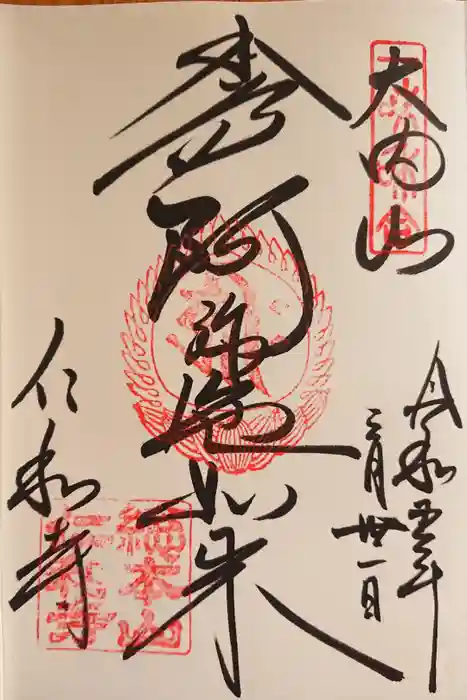 大内山
令和五年
三月卅一日
奉
阿弥陀如来
仁和寺
総本山
仁和寺